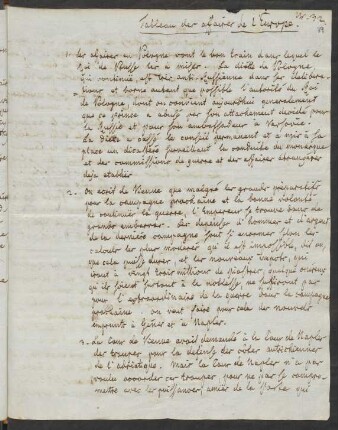 Tableau des affaires de l'Europe
1. les affaires en Pologne vont le bon train dans lequel le
Roi de Prusse les a mises. La diète de Pologne
qui continue, est très anti-Russienne dans ses délibera-
tions et borne autant que possible l'autorité du Roi
de Pologne, dont on convient aujourdhui generalement
que ce prince a abusé par son attachement decidé pour
la Russie et pour son ambassadeur à Varsovie.
La Diète a cassé le conseil permanent et a mis à sa
place un surveillant la conduite du monarque
et des commissions de guerre et des affaires etrangères
déja etablies
2. On ecrit de Vienne que malgré les grands préparatifs
pour la campagne prochaine et la bonne volonté
de continuer la guerre, l'Empereur se trouve dans de
grands embarras. Les depenses d'hommes et d'argent
de la dernière campagne sont si enormes selon les
calculs les plus moderés qu'il est impossible,
que cela puisse durer, et les nouveaux impots, qui
vont à vingt trois millions de piastres, quoique onereux
qu'ils soient surtout à la noblesse ne suffiront pas
pour l'extraordinaire de la guerre dans la campagne
prochaine. on veut faire pour cela de nouveaux
emprunts à Gènes et à Naples.
3. La Cour de Vienne avait demandé à la Cour de Naples
des troupes pour la defense des cotes autrichiennes
de l'adriatique. Mais la Cour de Naples n'a pas
voulu accorder ces troupes, pour ne pas se compro-
mettre avec les puissances, amies de la Porte qui